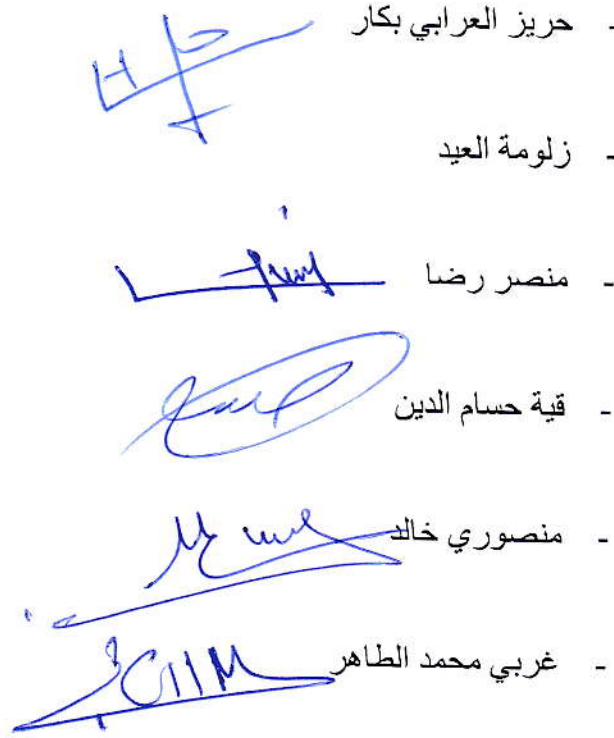 - حريز العرابي بكار
- زلومة العيد
- منصر رضا
- قية حسام الدين
- منصوري خالد
- غربي محمد الطاهر